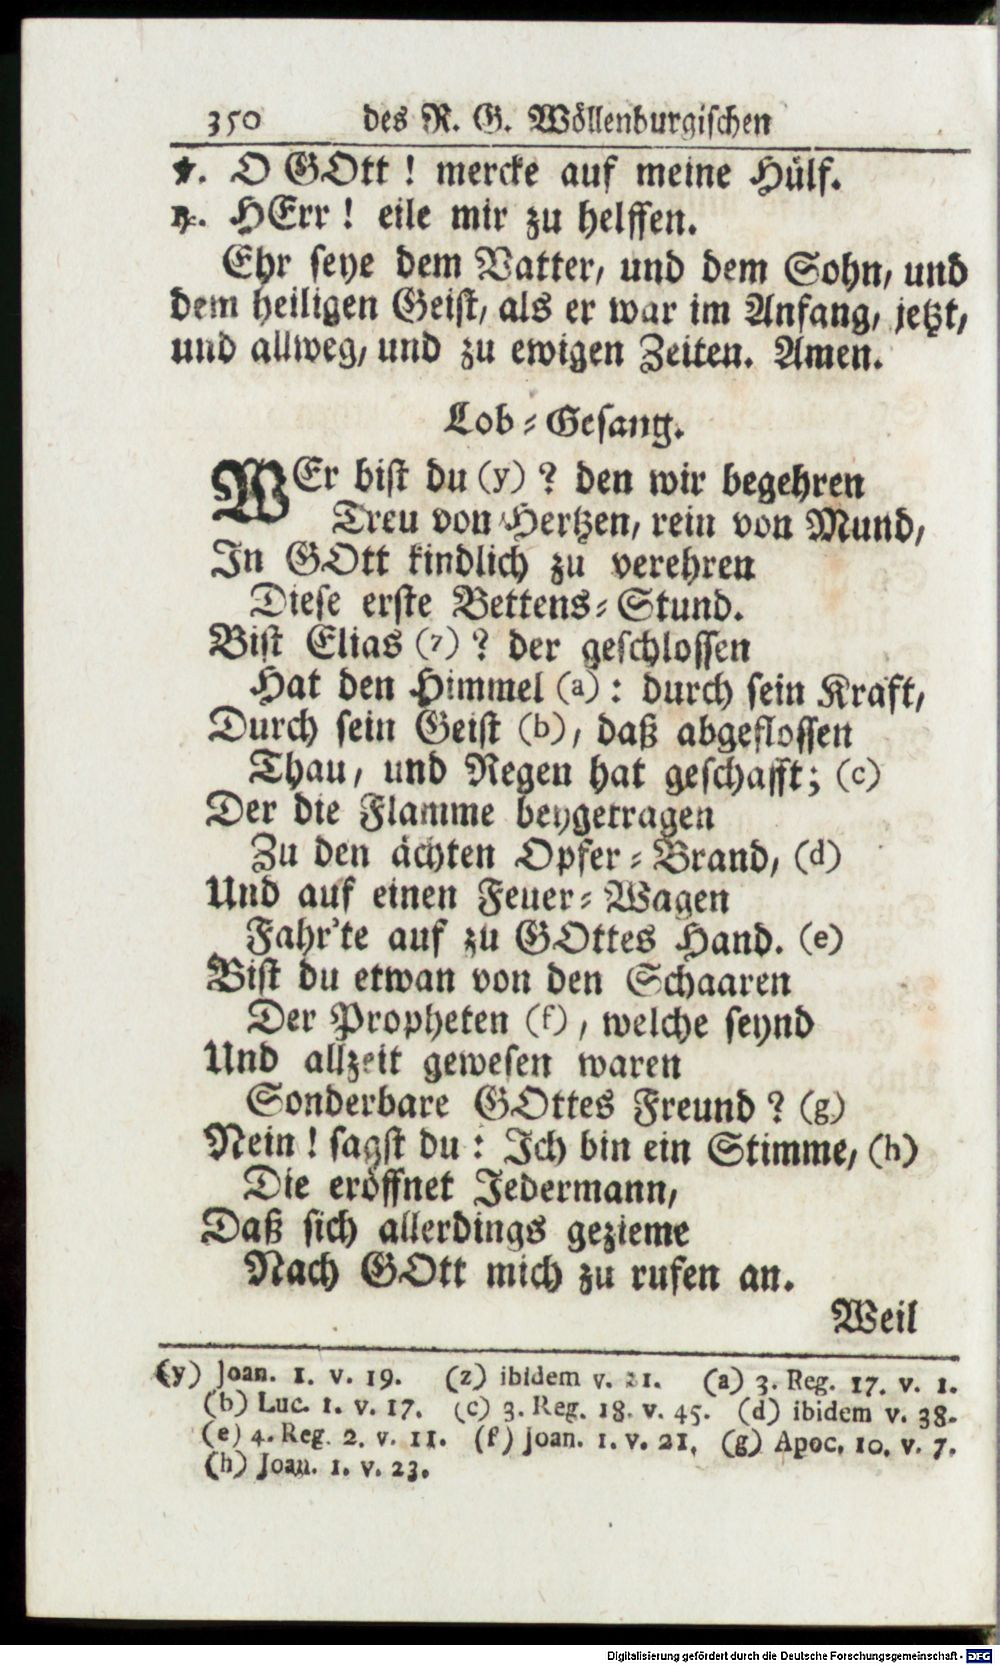 350 des R. G. Wöllenburgischen
℣. O GOtt! mercke auf meine Hülf.
℟. HErr! eile mir zu helffen.
Ehr seye dem Vatter, und dem Sohn, und
dem heiligen Geist, als er war im Anfang, jetzt,
und allweg, und zu ewigen Zeiten. Amen.
Lob-Gesang.
WEr bist du (y)? den wir begehren
Treu von Hertzen, rein von Mund,
In GOtt kindlich zu verehren
Diese erste Bettens-Stund.
Bist Elias (z)? der geschlossen
Hat den Himmel (a): durch sein Kraft,
Durch sein Geist (b), daß abgeflossen
Thau, und Regen hat geschafft; (c)
Der die Flamme beygetragen
Zu den ächten Opfer-Brand, (d)
Und auf einen Feuer-Wagen
Fahr'te auf zu GOttes Hand. (e)
Bist du etwan von den Schaaren
Der Propheten (f), welche seynd
Und allzeit gewesen waren
Sonderbare GOttes Freund? (g)
Nein! sagst du: Ich bin ein Stimme, (h)
Die eröffnet Jedermann,
Daß sich allerdings gezieme
Nach GOtt mich zu rufen an.
Weil
(y) Joan. 1. v. 19. (z) ibidem v. 21. (a) 3. Reg. 17. v. 1.
(b) Luc. 1. v. 17. (c) 3. Reg. 18. v. 45. (d) ibidem v. 38.
(e) 4. Reg. 2. v. 11. (f) Joan. 1. v. 21. (g) Apoc. 10. v. 7.
(h) Joan. 1. v. 23.
Digitalisierung gefördert durch die Deutsche Forschungsgemeinschaft - DFG